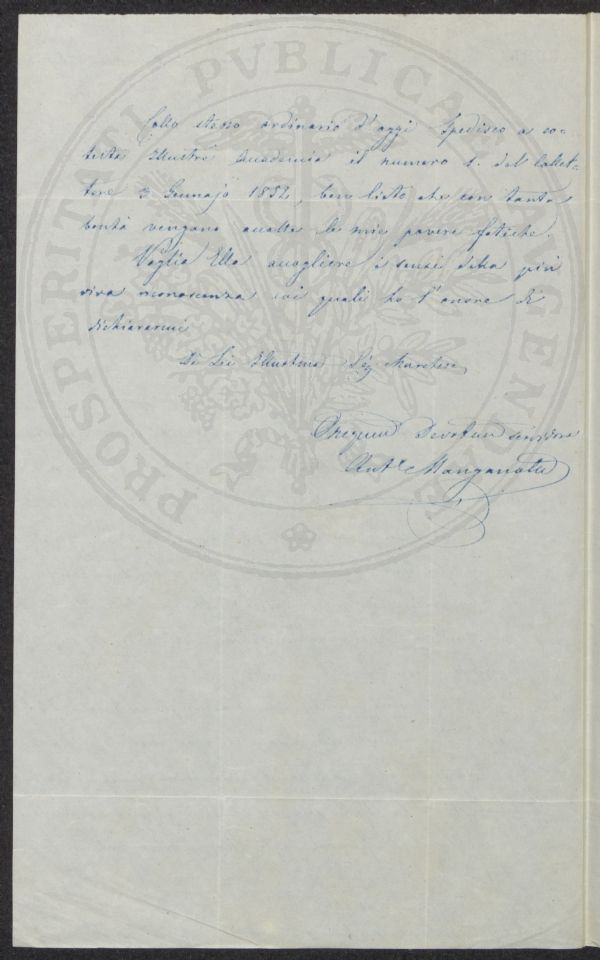 PROSPERITATI PUBLICAE AUGENDAE
Collo stesso ordinario d'oggi spedisco a co-
testa Illustre Accademia il numero 1. del Collet-
tore 3 Gennajo 1852, ben lieto che con tanta
bontà vengano accolte le mie povere fatiche.
Voglia Ella accogliere i sensi della più
viva riconoscenza coi quali ho l'onore di
dichiararmi
Di Lei Illustmo Sig Marchese
Devotmo servidore
Antº Manganotti